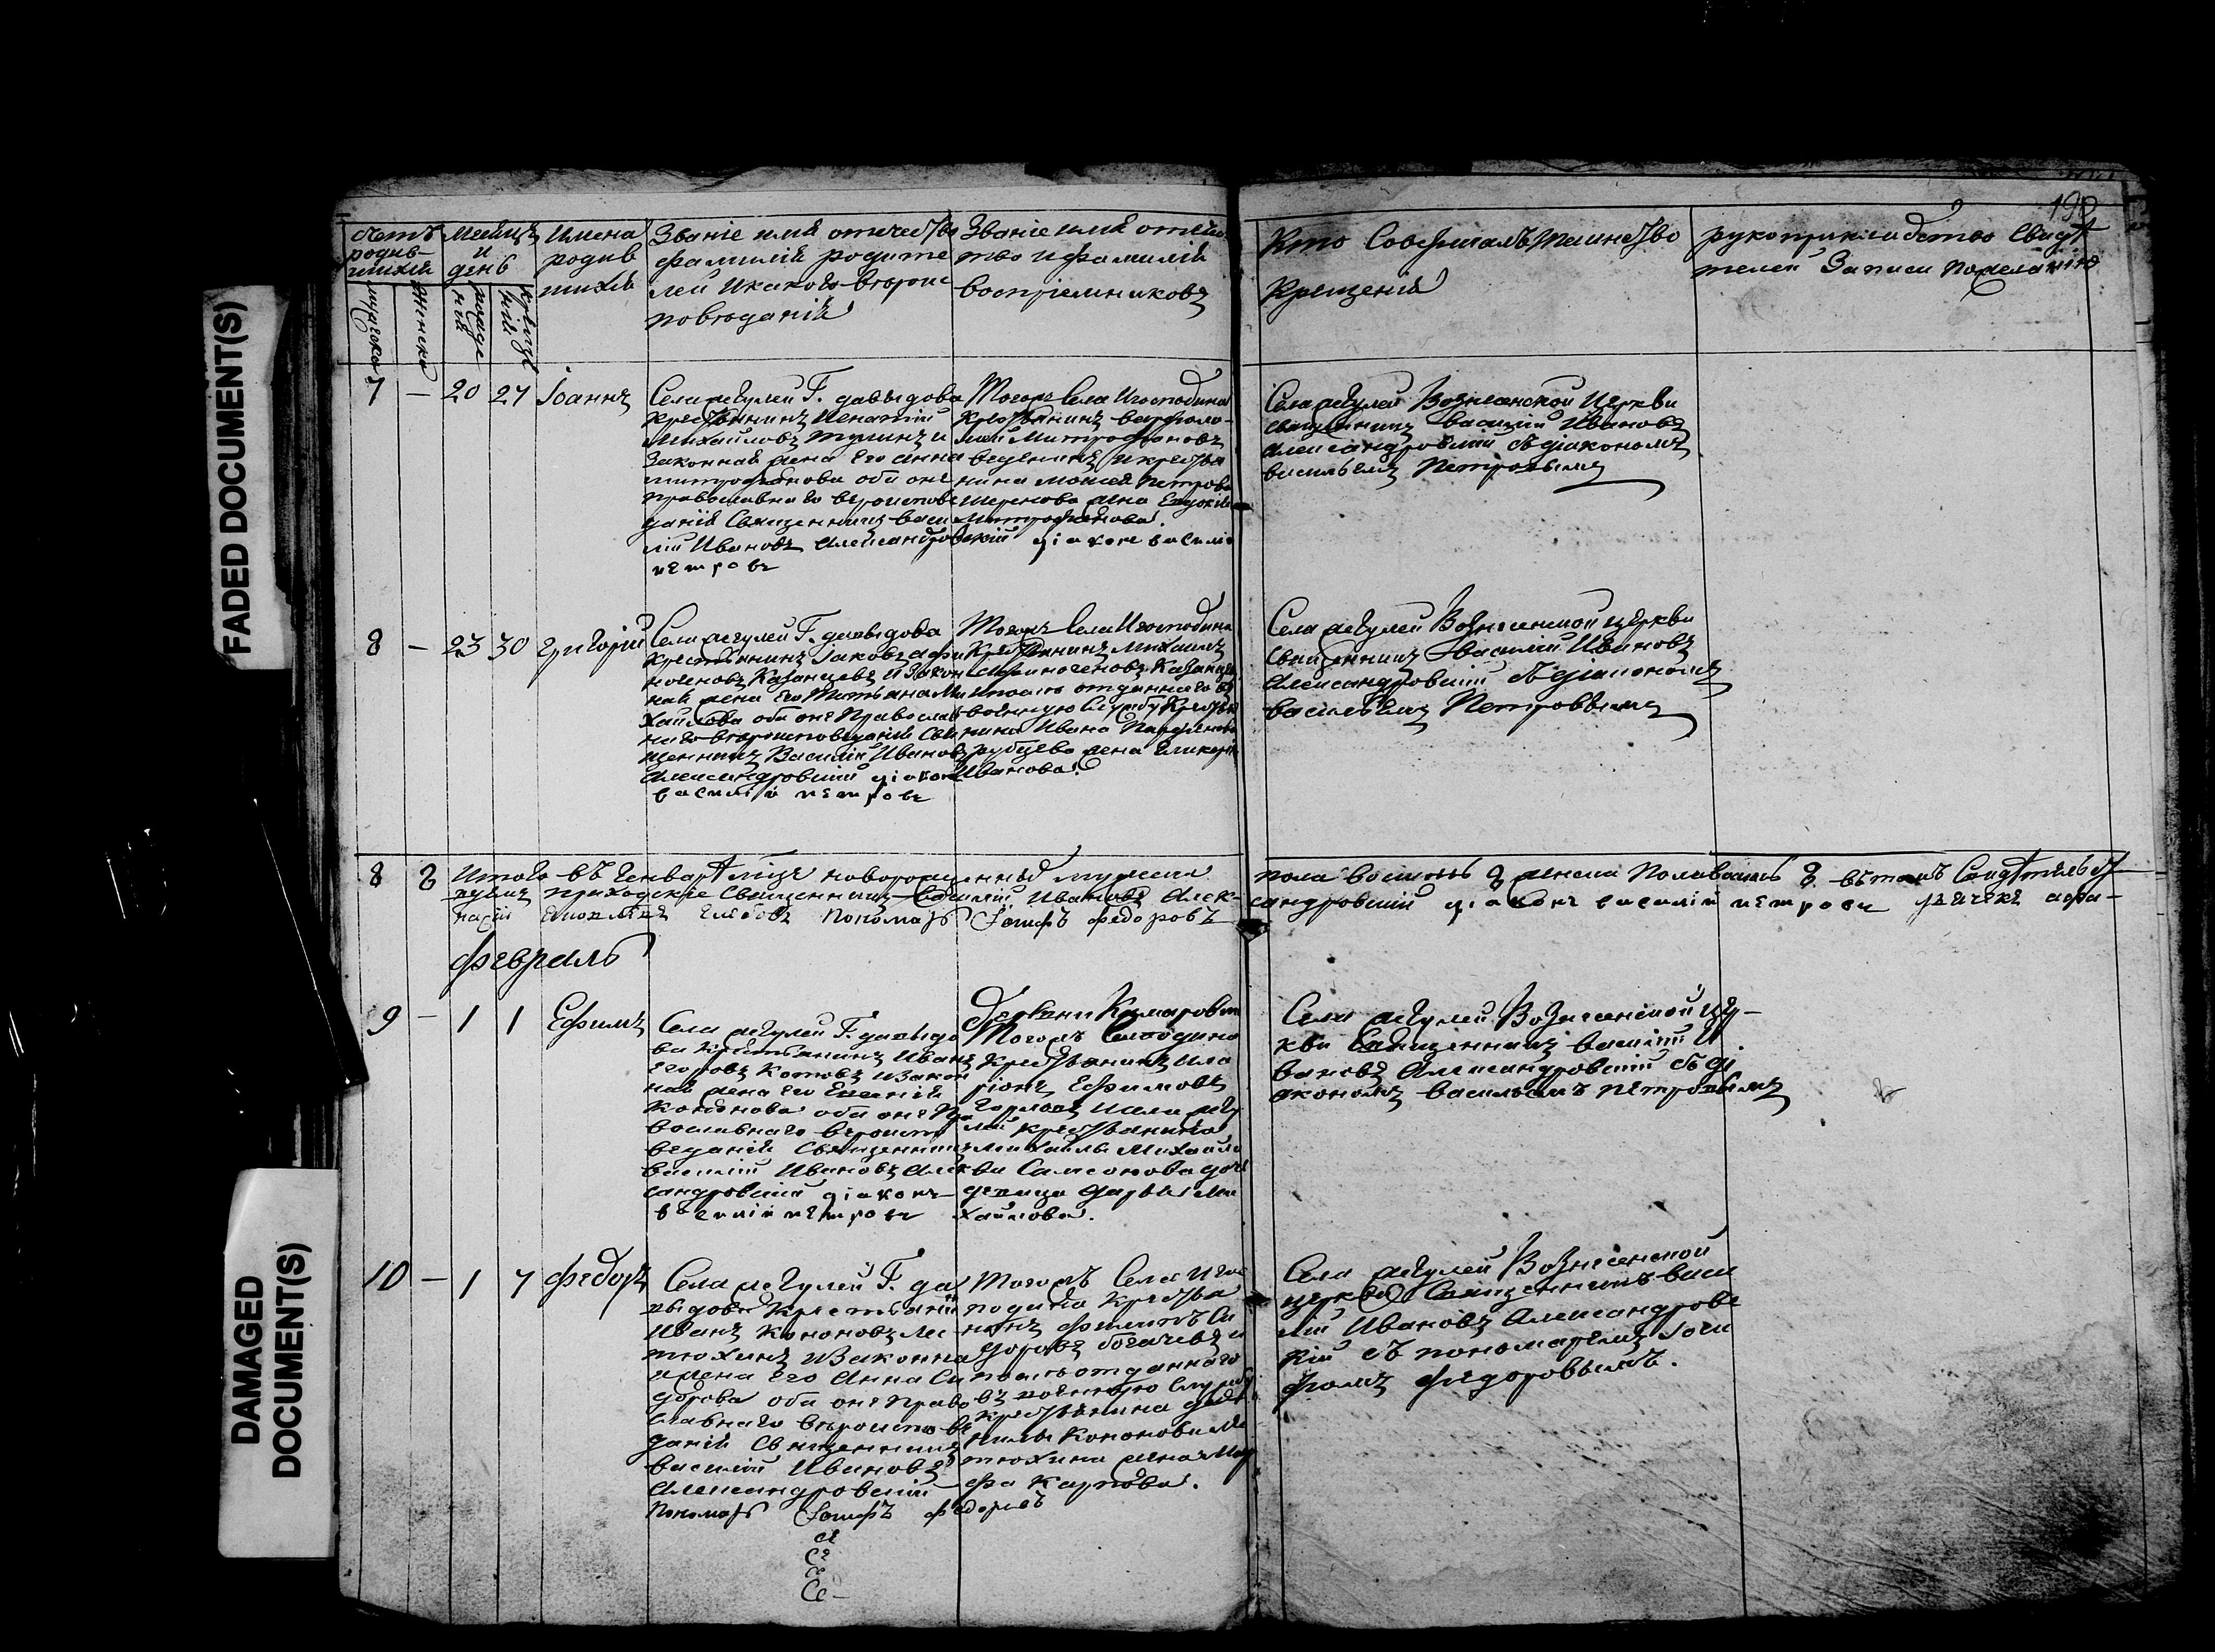 FADED DOCUMENT(S)
DAMAGED
DOCUMENT(S)
Счетъ
родив-
шихся
мужеска
женска
Месяцъ
и
день
рожде
нія
крещe
нія
Имена
родив
шихся
Званіе имя отчество
фамилія родите
лей и какого вероис
поведанія
Званіе имя отчес
тво и фамилія
воспріемниковъ
Кто Совершалъ таинство
Крещенія
рукоприкладство Свидѣ
телей Записи по желанію
7 — 20 27 Іоаннъ
Села Жегулей Г. давыдова
крестьянинъ Игнатій
Михайловъ и
Законная жена Его анна
митрофанова оба оне
православнаго вероиспове
данія Священникъ Васи
лій Ивановъ Александровскій діаконъ василій
петровъ
Тогоже Села и господина
крестьянинъ варфоло
мей Митрофановъ
и крестья
нина Моисея Петрова
жена Евдокия
Митрофанова.
Села Жегулей Вознесенской Церкви
священникъ василій Ивановъ
Александровскій съ діакономъ
васильемъ Петровымъ
8 — 23 30 Григорій
Села жегулей Г. давыдова
Крестьянинъ Іаковъ афи
ногеновъ Казанцевъ и Закон
ная жена Его Татьяна Ми
хайлова оба оне Православ
наго вероисповеданія Свя
щенникъ Василій Ивановъ
Александровскій діаконъ
василій петровъ
Тогожъ Села и господина
Крестьянинъ Михаилъ
Афиногеновъ Казанцевъ
отданнаго въ
военную Службу Крестья
нина Ивана Парфенова
рубцева жена Гликерія
Иванова.
Села жегулей Вознесенской церкви
Священникъ Василій Ивановъ
Александровскій съ діакономъ
васильемъ Петровымъ
8 8 Итого въ Генварѣ мцѣ новорожденныхъ мужеска
пола восемь 8 женска Пола восемь 8 въ томъ Свидѣтельст
вуемъ приходскіе Священникъ Василій Ивановъ Алек-
сандровскій діаконъ василій петровъ дьячекъ афа-
насій Глебовъ Пономарь Іосифъ федоровъ
февраль
9 — 1 1 Ефимъ
Села жегулей Г. давыдо
ва крестьянинъ Иванъ
Егоровъ Котовъ и Закон
ная жена Его Евгенія
Кононова оба оне Пра
вославнаго вероиспо
веданія Священникъ
василій Ивановъ Алек
сандровскій діаконъ
василій петровъ
деревни Комаровки
Тогожъ Господина
крестьянинъ Ила
ріонъ Ефимовъ
Горловъ и села жегу
лей крестьянина
Михаилы Михайло
ва Самсонова дочь
девица Дарья Ми
хайлова.
Села жегулей Вознесенской це
ркви Священникъ василій И
вановъ Александровскій съ ді
акономъ васильемъ петровымъ
10 — 1 7 федоръ
Села жегулей Г. да
выдова Крестьянинъ
Иванъ Кононовъ Ме
тюхинъ и Законна
я жена Его Анна Си
дорова оба оне Право
славнаго вероиспове
данія Священникъ
василій Ивановъ
Александровскій
Пономарь Іосифъ федоровъ
Тогожъ Села и гос
подина крестья
нинъ филипъ Си
доровъ богачевъ и
отданнаго
въ военную Службу
крестьянина
Кононова Ме
тюхина жена Мар
фа Карпова.
Села жегулей Вознесенской
церкви Священникъ васи
лій Ивановъ Александровс
кій съ пономаремъ Іоси
фомъ федоровымъ.